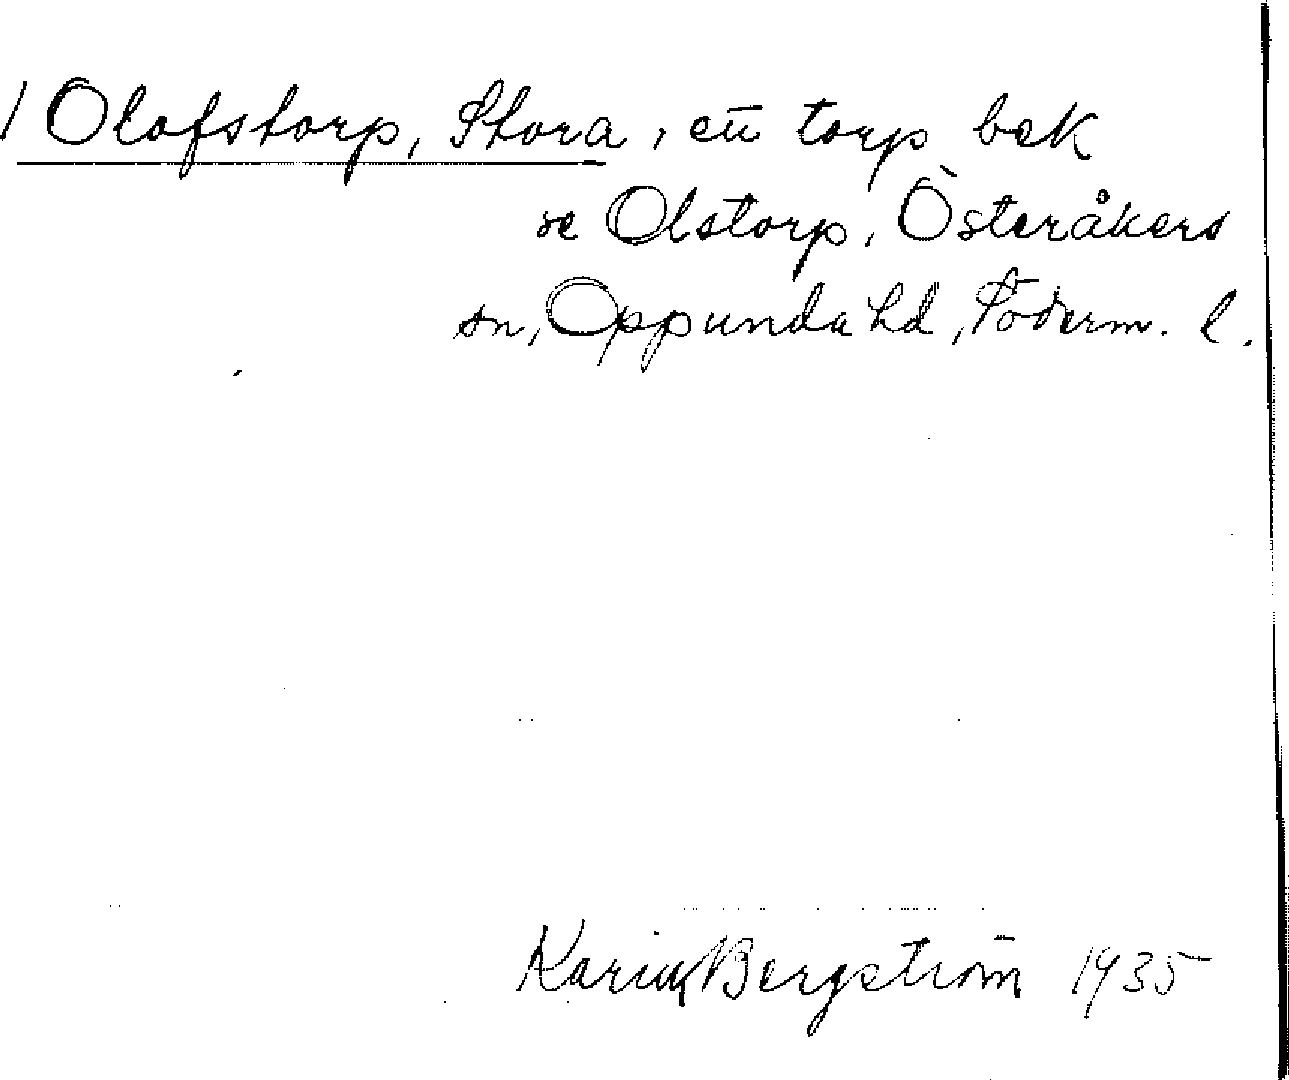 / Olofstorp, Stora, ett torp bek
se Olstorp, Österåkers
sn, Oppunda hd, Söderm. l.
Karin Bergström 1935